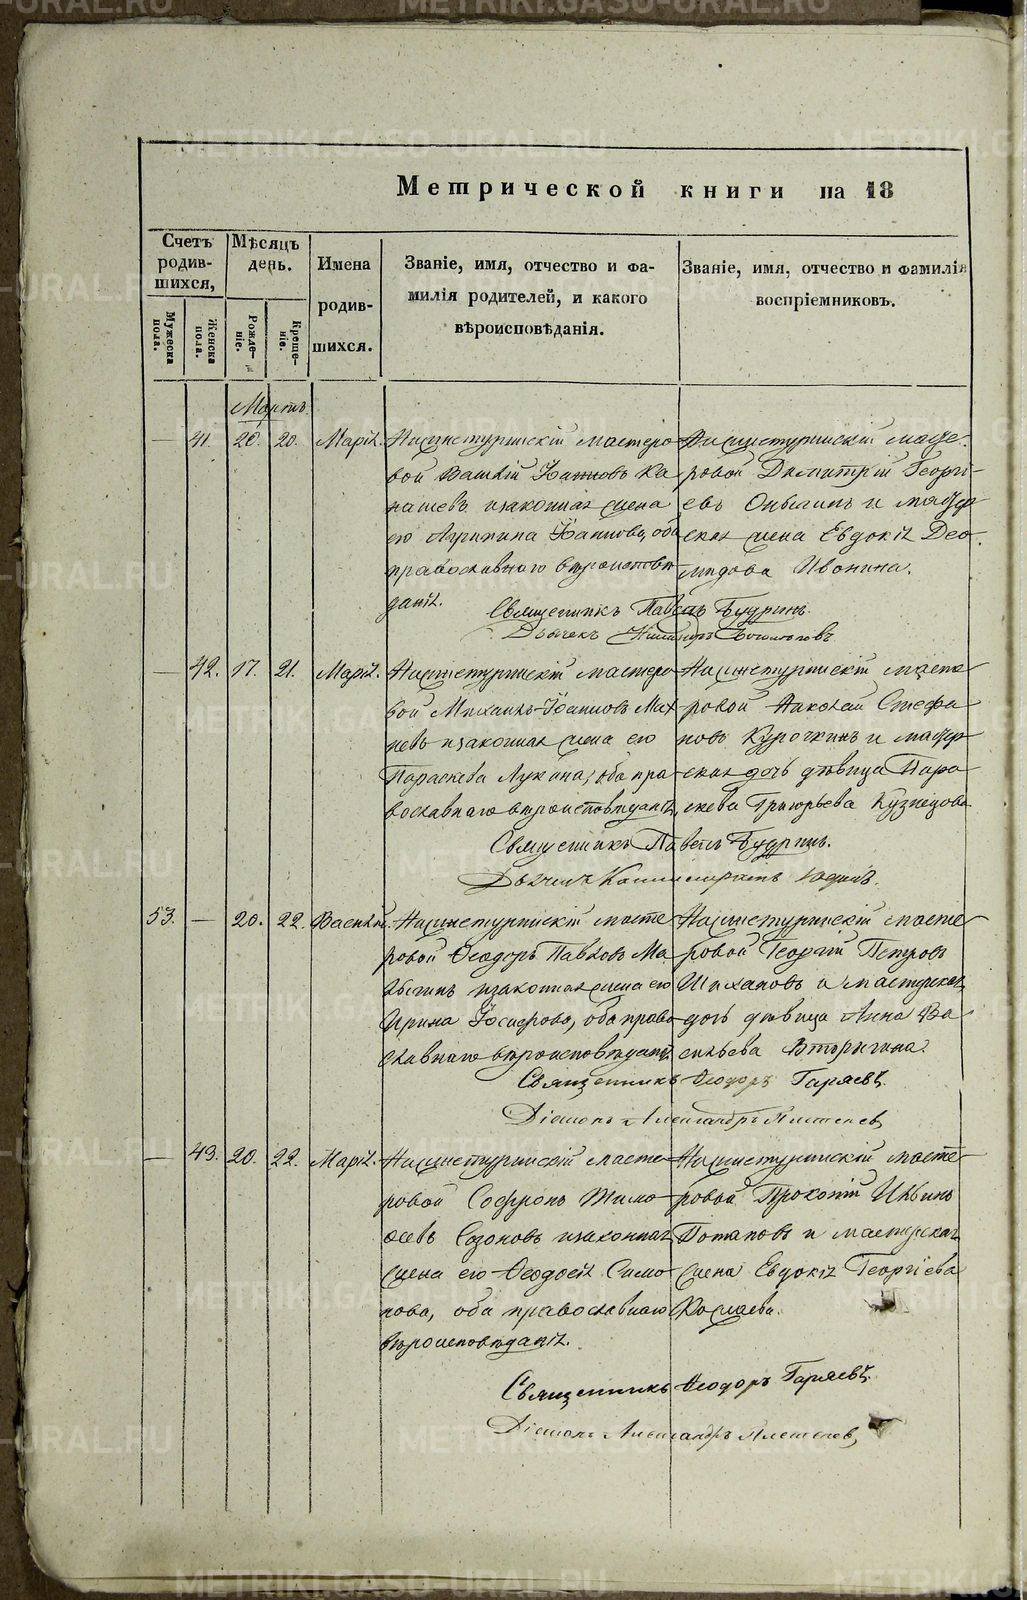 Метрической книги на 18
Счетъ родив-шихся,
Мужеска пола.
Женска пола.
Мѣсяцъ день.
Рожде-ніе.
Креще-ніе.
Имена родив-шихся.
Званіе, имя, отчество и фа-
милія родителей, и какого
вѣроисповѣданія.
Званіе, имя, отчество и фамилія
воспріемниковъ.
Мартъ.
— 41. 20. 20. Марія.
Нижнетуринскій мастеро-
вой Іоанновъ Ка-
и законная жена
его Агрипина Іоаннова, оба
православнаго вѣроисповѣ-
данія.
Нижнетуринскій масте-
ровой Димитрій Георгі-
евъ и мастер-
ская жена Евдокія Део-
мидова Ивонина.
Священникъ Павелъ Будринъ.
Дьячекъ
— 42. 17. 21. Марія.
Нижнетуринскій мастеро-
вой Михаилъ Іоанновъ Мих-
и законная жена его
Параскева Лукина, оба пра-
вославнаго вѣроисповѣданія.
Нижнетуринскій масте-
ровой Николай Стефа-
новъ Курочкинъ и мастер-
ская дочь дѣвица Пара-
скева Григорьева Кузнецова
Священникъ Павелъ Будринъ.
Дьячекъ
53. — 20. 22. Василій.
Нижнетуринскій масте-
ровой Ѳеодоръ Павловъ Ма-
и законная жена его
Ирина Іосифова, оба право-
славнаго вѣроисповѣданія.
Нижнетуринскій масте-
ровой Георгій Петровъ
и мастерская
дочь дѣвица Анна Ва-
сильева Вторыгина.
Священникъ Ѳеодоръ Гаряевъ.
Діаконъ Александръ
— 43. 20. 22. Марія.
Нижнетуринскій масте-
ровой Софронъ Тимо-
ѳеевъ Созоновъ и законная
жена его Ѳеодосія Симо-
нова, оба православнаго
вѣроисповѣданія.
Нижнетуринскій масте-
ровой Прокопій
Потаповъ и мастерская
жена Евдокія Георгіева
Священникъ Ѳеодоръ Гаряевъ.
Діаконъ Александръ
METRIKI.GASO-URAL.RU